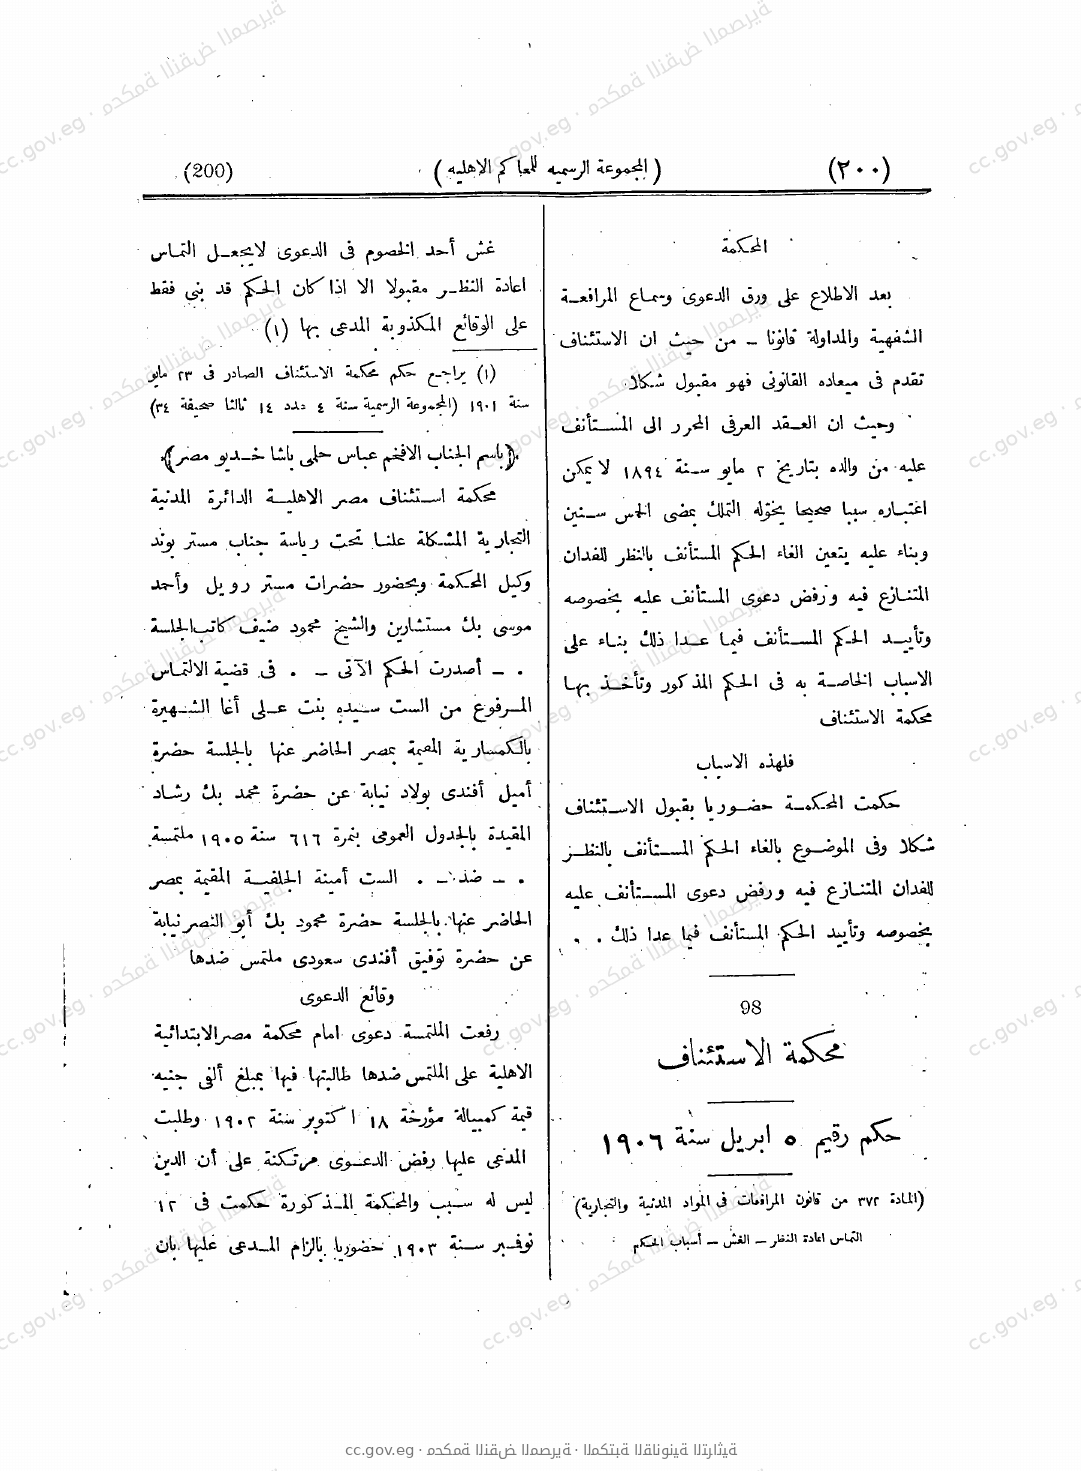 (٢٠٠)
(المجموعة الرسميه للمحاكم الاهليه)
(200)
المحكمة
بعد الاطلاع على ورق الدعوى وسماع المرافعة
الشفهية والمداولة قانونا – من حيث ان الاستئناف
تقدم فى ميعاده القانونى فهو مقبول شكلا
وحيث ان العقد العرفى المحرر الى المستأنف
عليه من والده بتاريخ ٢ مايو سنة ١٨٩٤ لا يمكن
اعتباره سببا صحيحا يخوله التملك بمضى الخمس سنين
وبناء عليه يتعين الغاء الحكم المستأنف بالنظر للفدان
المتنازع فيه ورفض دعوى المستأنف عليه بخصوصه
وتأييد الحكم المستأنف فيما عدا ذلك بناء على
الاسباب الخاصة به فى الحكم المذكور وتأخذ بها
محكمة الاستئناف
فلهذه الاسباب
حكمت المحكمة حضوريا بقبول الاستئناف
شكلا وفى الموضوع بالغاء الحكم المستأنف بالنظر
للفدان المتنازع فيه ورفض دعوى المستأنف عليه
بخصوصه وتأييد الحكم المستأنف فيما عدا ذلك . .
98
محكمة الاستئناف
حكم رقيم ٥ ابريل سنة ١٩٠٦
(المادة ٣٧٢ من قانون المرافعات فى المواد المدنية والتجارية)
التماس اعادة النظر – الغش – أسباب الحكم
غش أحد الخصوم فى الدعوى لا يجعل التماس
اعادة النظر مقبولا الا اذا كان الحكم قد بنى فقط
على الوقائع المكذوبة المدعى بها (١)
(١) يراجع حكم محكمة الاستئناف الصادر فى ٢٣ مايو
سنة ١٩٠١ (المجموعة الرسمية سنة ٤ عدد ١٤ ثالثا صحيفة ٣٤)
(باسم الجناب الافخم عباس حلمى باشا خديو مصر)
محكمة استئناف مصر الاهلية الدائرة المدنية
التجارية المشكلة علنا تحت رياسة جناب مستر بوند
وكيل المحكمة وبحضور حضرات مستر رويل وأحمد
موسى بك مستشارين والشيخ محمود ضيف كاتب الجلسة
. – أصدرت الحكم الآتى – . فى قضية الالتماس
المرفوع من الست سيده بنت على أغا الشهيرة
بالكمسارية المقيمة بمصر الحاضر عنها بالجلسة حضرة
أميل أفندى بولاد نيابة عن حضرة محمد بك رشاد
المقيدة بالجدول العمومى بنمرة ٦١٦ سنة ١٩٠٥ ملتمسة
. – ضد – . الست أمينة الجلفية المقيمة بمصر
الحاضر عنها بالجلسة حضرة محمود بك أبو النصر نيابة
عن حضرة توفيق أفندى سعودى ملتمس ضدها
وقائع الدعوى
رفعت الملتمسة دعوى امام محكمة مصر الابتدائية
الاهلية على الملتمس ضدها طالبتها فيها بمبلغ ألفى جنيه
قيمة كمبيالة مؤرخة ١٨ اكتوبر سنة ١٩٠٢ وطلبت
المدعى عليها رفض الدعوى مرتكنة على أن الدين
ليس له سبب والمحكمة المذكورة حكمت فى ١٢
نوفمبر سنة ١٩٠٣ حضوريا بالزام المدعى عليها بان
cc.gov.eg · محكمة النقض المصرية · المكتبة القانونية التراثية